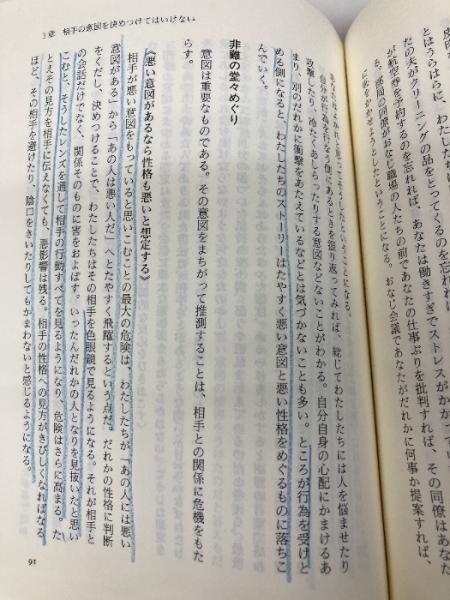 3章 相手の意図を決めつけてはいけない
とはうらはらに、
だの夫がクリーニングの品をとってくるのを忘れれば
が航空券を予約するのを忘れれば、あなたは働きすぎでストレスがかか
の同僚がおなじ職場の人たちの前であなたの仕事ぶりを批判すれば、その同僚はあなた
に恥をかかせようとしたということになる。おなじ会議であなたがだれかに何事か提案すれば、
そうしたということになる。
自分が行為を行なう側にあるときを振り返ってみれば、総じてわたしたちには人を悩ませたり
攻撃したり、冷たくあしらったりする意図などないことがわかる。自分自身の心配にかまけるあ
まり、別のだれかに衝撃をあたえているなどとは気づかないことも多い。ところが行為を受けと
める側になると、わたしたちのストーリーはたやすく悪い意図と悪い性格をめぐるものに落ちこ
んでいく。
非難の堂々めぐり
意図は重要なものである。その意図をまちがって推測することは、相手との関係に危機をもた
らす。
《悪い意図があるなら性格も悪いと想定する》
相手が悪い意図をもっていると思いこむことの最大の危険は、わたしたちが、「あの人には悪い
意図がある」から「あの人は悪い人だ」へとたやすく飛躍するという点だ。だれかの性格に判断
をくだし、決めつけることで、わたしたちはその相手を色眼鏡で見るようになる。それが相手と
の会話だけでなく、関係そのものに害をおよぼす。いったんだれかの人となりを見抜いたと思い
こむと、そうしたレンズを通して相手の行動すべてを見るようになり、危険はさらに高まる。た
とえその見方を相手に伝えなくても、悪影響は残る。相手の性格への見方がきびしくなればなる
ほど、その相手を避けたり、陰口をきいたりしてもかまわないと感じるようになる。
91